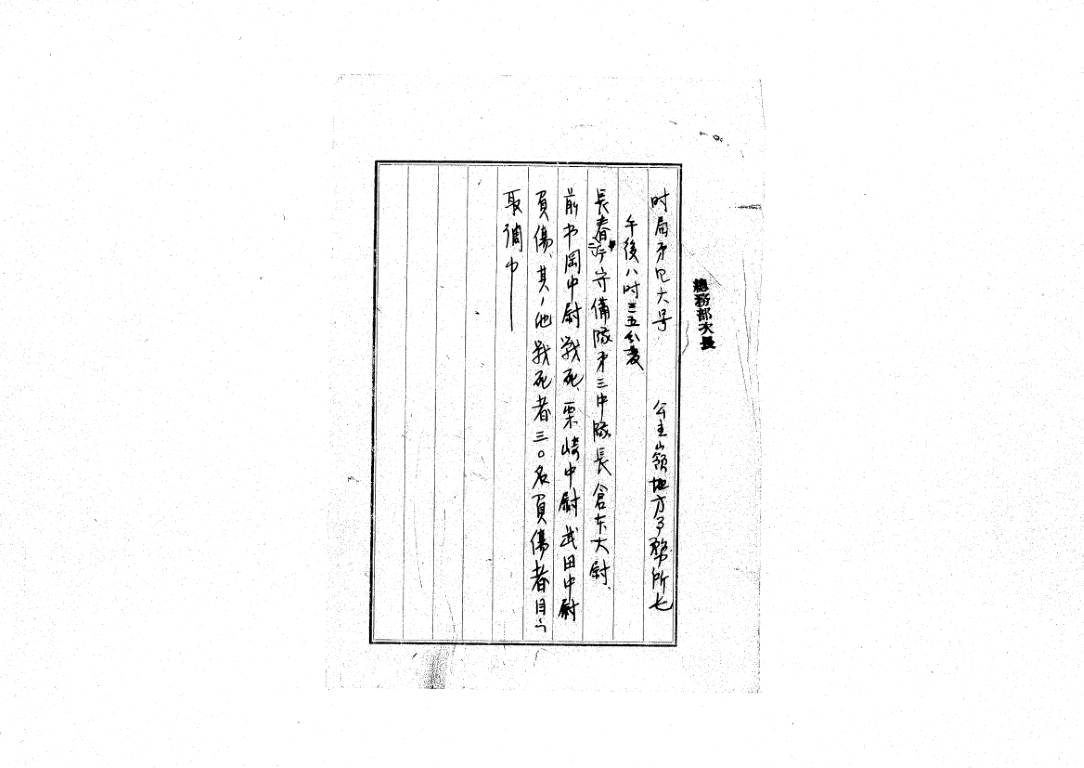 總務部次長
時局第四六号 公主嶺地方事務所長
午後八時三五分発
長春 守備隊第三中隊長倉本大尉、
前市岡中尉戦死、栗崎中尉武田中尉
負傷、其ノ他戦死者三〇名負傷者目下
取調中